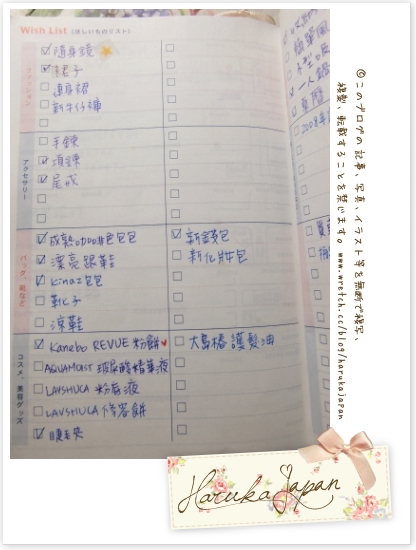 Wish List (ほしいものリスト)
ファッション
隨身鏡
裙子
連身裙
新牛仔褲
アクセサリー
手鍊
項鍊
尾戒
バッグ、靴など
成熟 包包
漂亮跟鞋
kinaz包包
靴子
涼鞋
新錢包
新化妝包
コスメ、美容グッズ
Kanebo REVUE 粉餅
AQUAMOIST 玻尿酸精華液
LAVSHUCA 粉底液
LAVSHUCA 修容餅
睫毛夾
大島椿 護髮油
©このブログの記事、写真、イラスト等を無断で複写、
複製、転載することを禁じます。 www.wretch.cc/blog/harukajapan
Haruka Japan